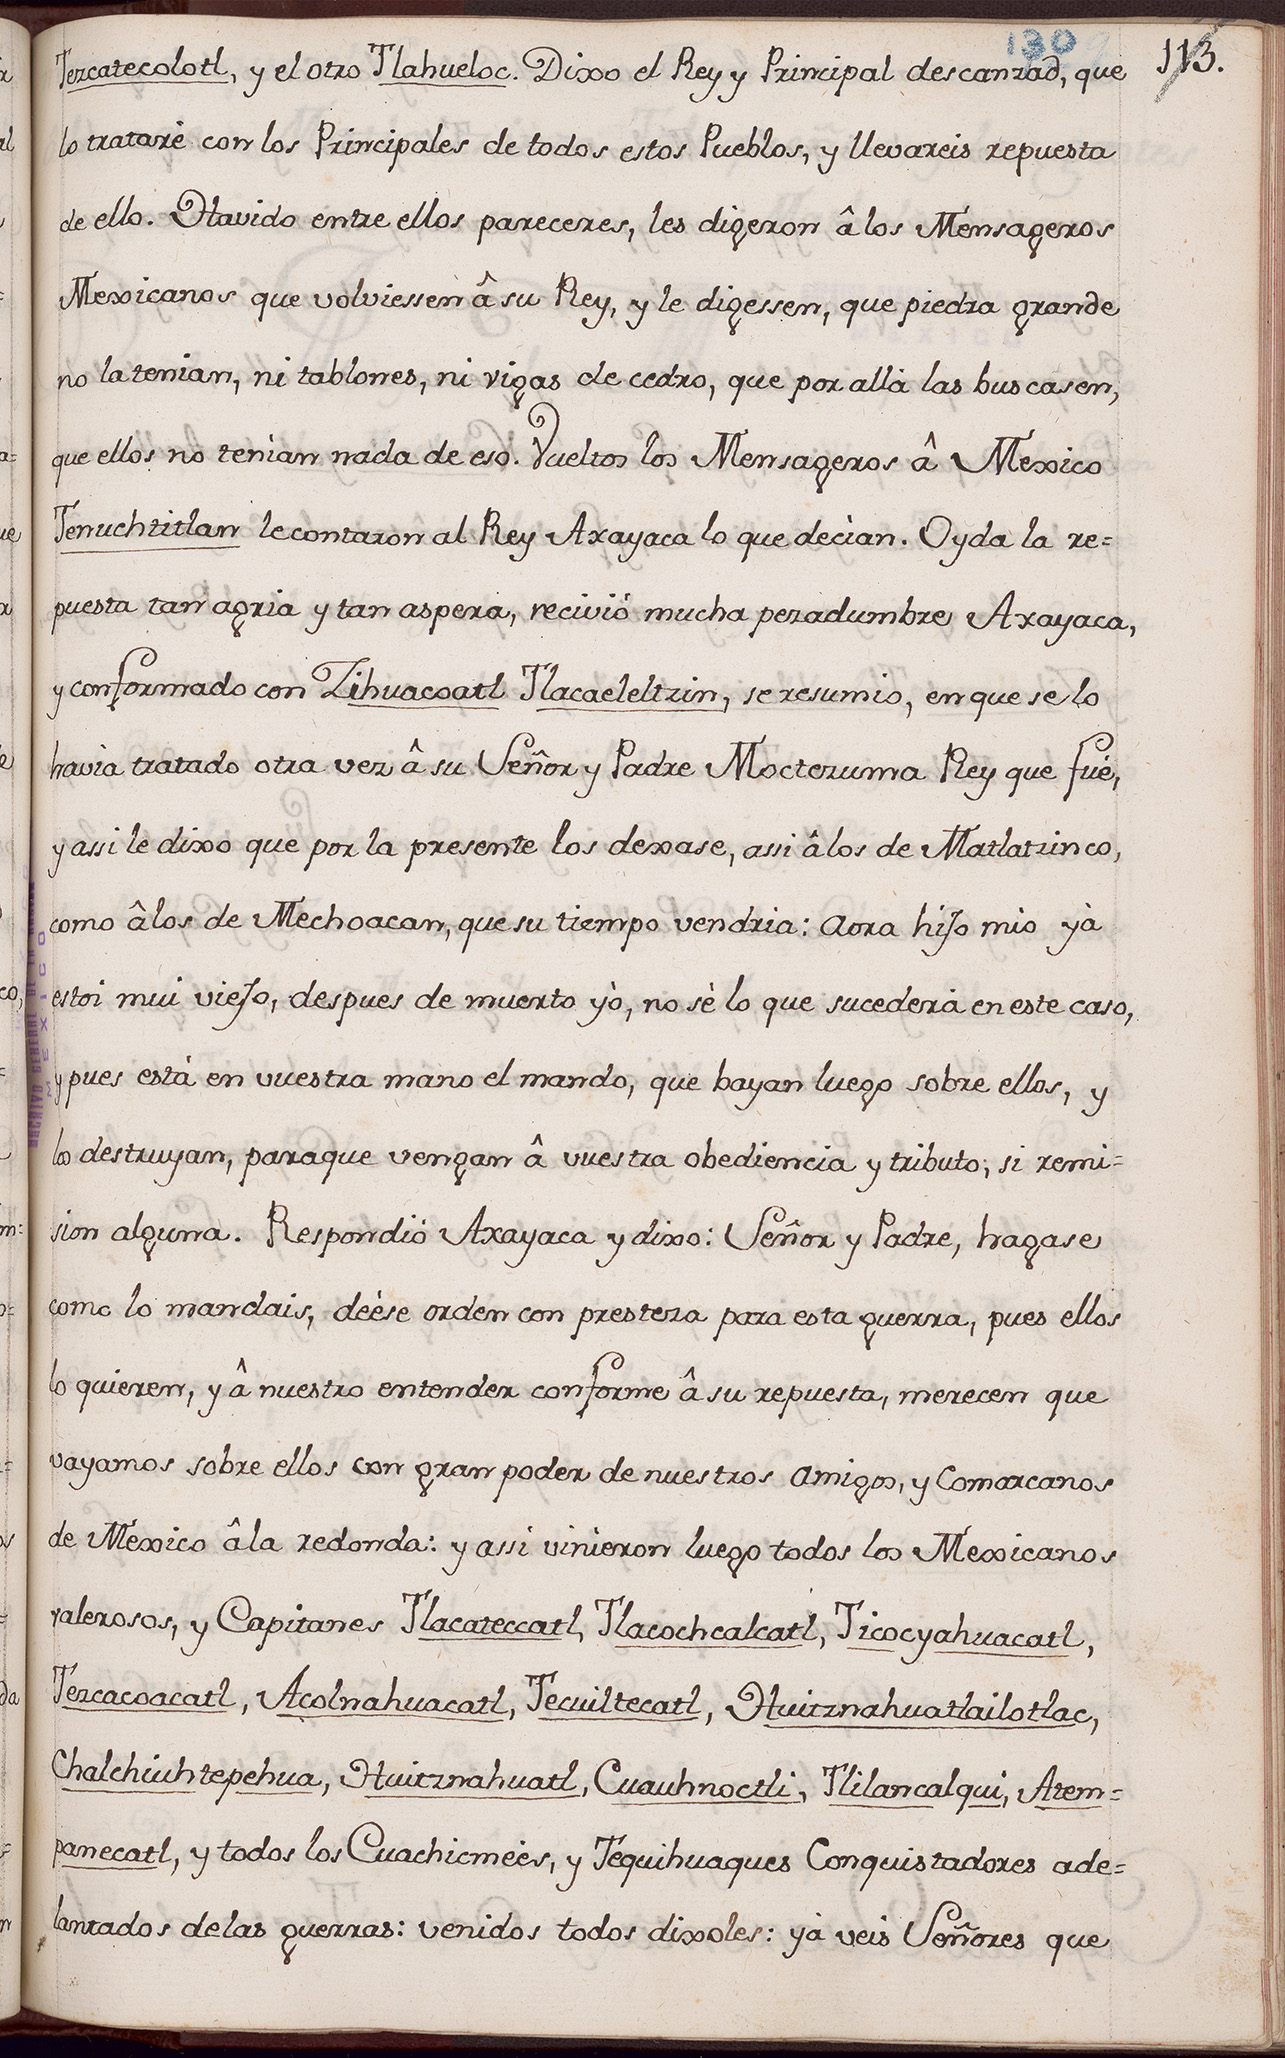 130
113.
Tezcatecolotl, y el otro Tlahueloc. Dixo el Rey y Principal descanzad, que
lo trataré con los Principales de todos estos Pueblos, y llevareis repuesta
de ello. Havido entre ellos pareceres, les digeron â los Mensageros
Mexicanos que volviessen â su Rey, y le digessen, que piedra grande
no la tenian, ni tablones, ni vigas de cedro, que por allà las buscasen,
que ellos no tenian nada de eso. Vueltos los Mensageros â Mexico
Tenuchtitlan le contaron al Rey Axayaca lo que decian. Oyda la re=
puesta tan agria y tan aspera, recivió mucha pezadumbre Axayaca,
y conformado con Zihuacoatl Tlacaeleltzin, se resumio, en que se lo
havia tratado otra vez â su Señor y Padre Moctezuma Rey que fué,
y assi le dixo que por la presente los dexase, assi â los de Matlatzinco,
como â los de Mechoacan, que su tiempo vendria: aora hijo mio yà
estoi mui viejo, despues de muerto yò, no sè lo que sucederà en este caso,
y pues està en vuestra mano el mando, que bayan luego sobre ellos, y
los destruyan, paraque vengan â vuestra obediencia y tributo; si remi=
sion alguna. Respondiò Axayaca y dixo: Señor y Padre, hagase
como lo mandais, deèse orden con presteza para esta guerra, pues ellos
lo quieren, y â nuestro entender conforme â su repuesta, merecen que
vayamos sobre ellos con gran poder de nuestros amigos, y Comarcanos
de Mexico â la redonda: y assi vinieron luego todos los Mexicanos
valerosos, y Capitanes Tlacateccatl, Tlacochcalcatl, Ticocyahuacatl,
Tezcacoacatl, Acolnahuacatl, Tecuiltecatl, Huitznahuatlailotlac,
Chalchiuhtepehua, Huitznahuatl, Cuauhnoctli, Tlilancalqui, Atem=
panecatl, y todos los Cuachicmeès, y Tequihuaques Conquistadores ade=
lantados de las guerras: venidos todos dixoles: yà veis Señores que